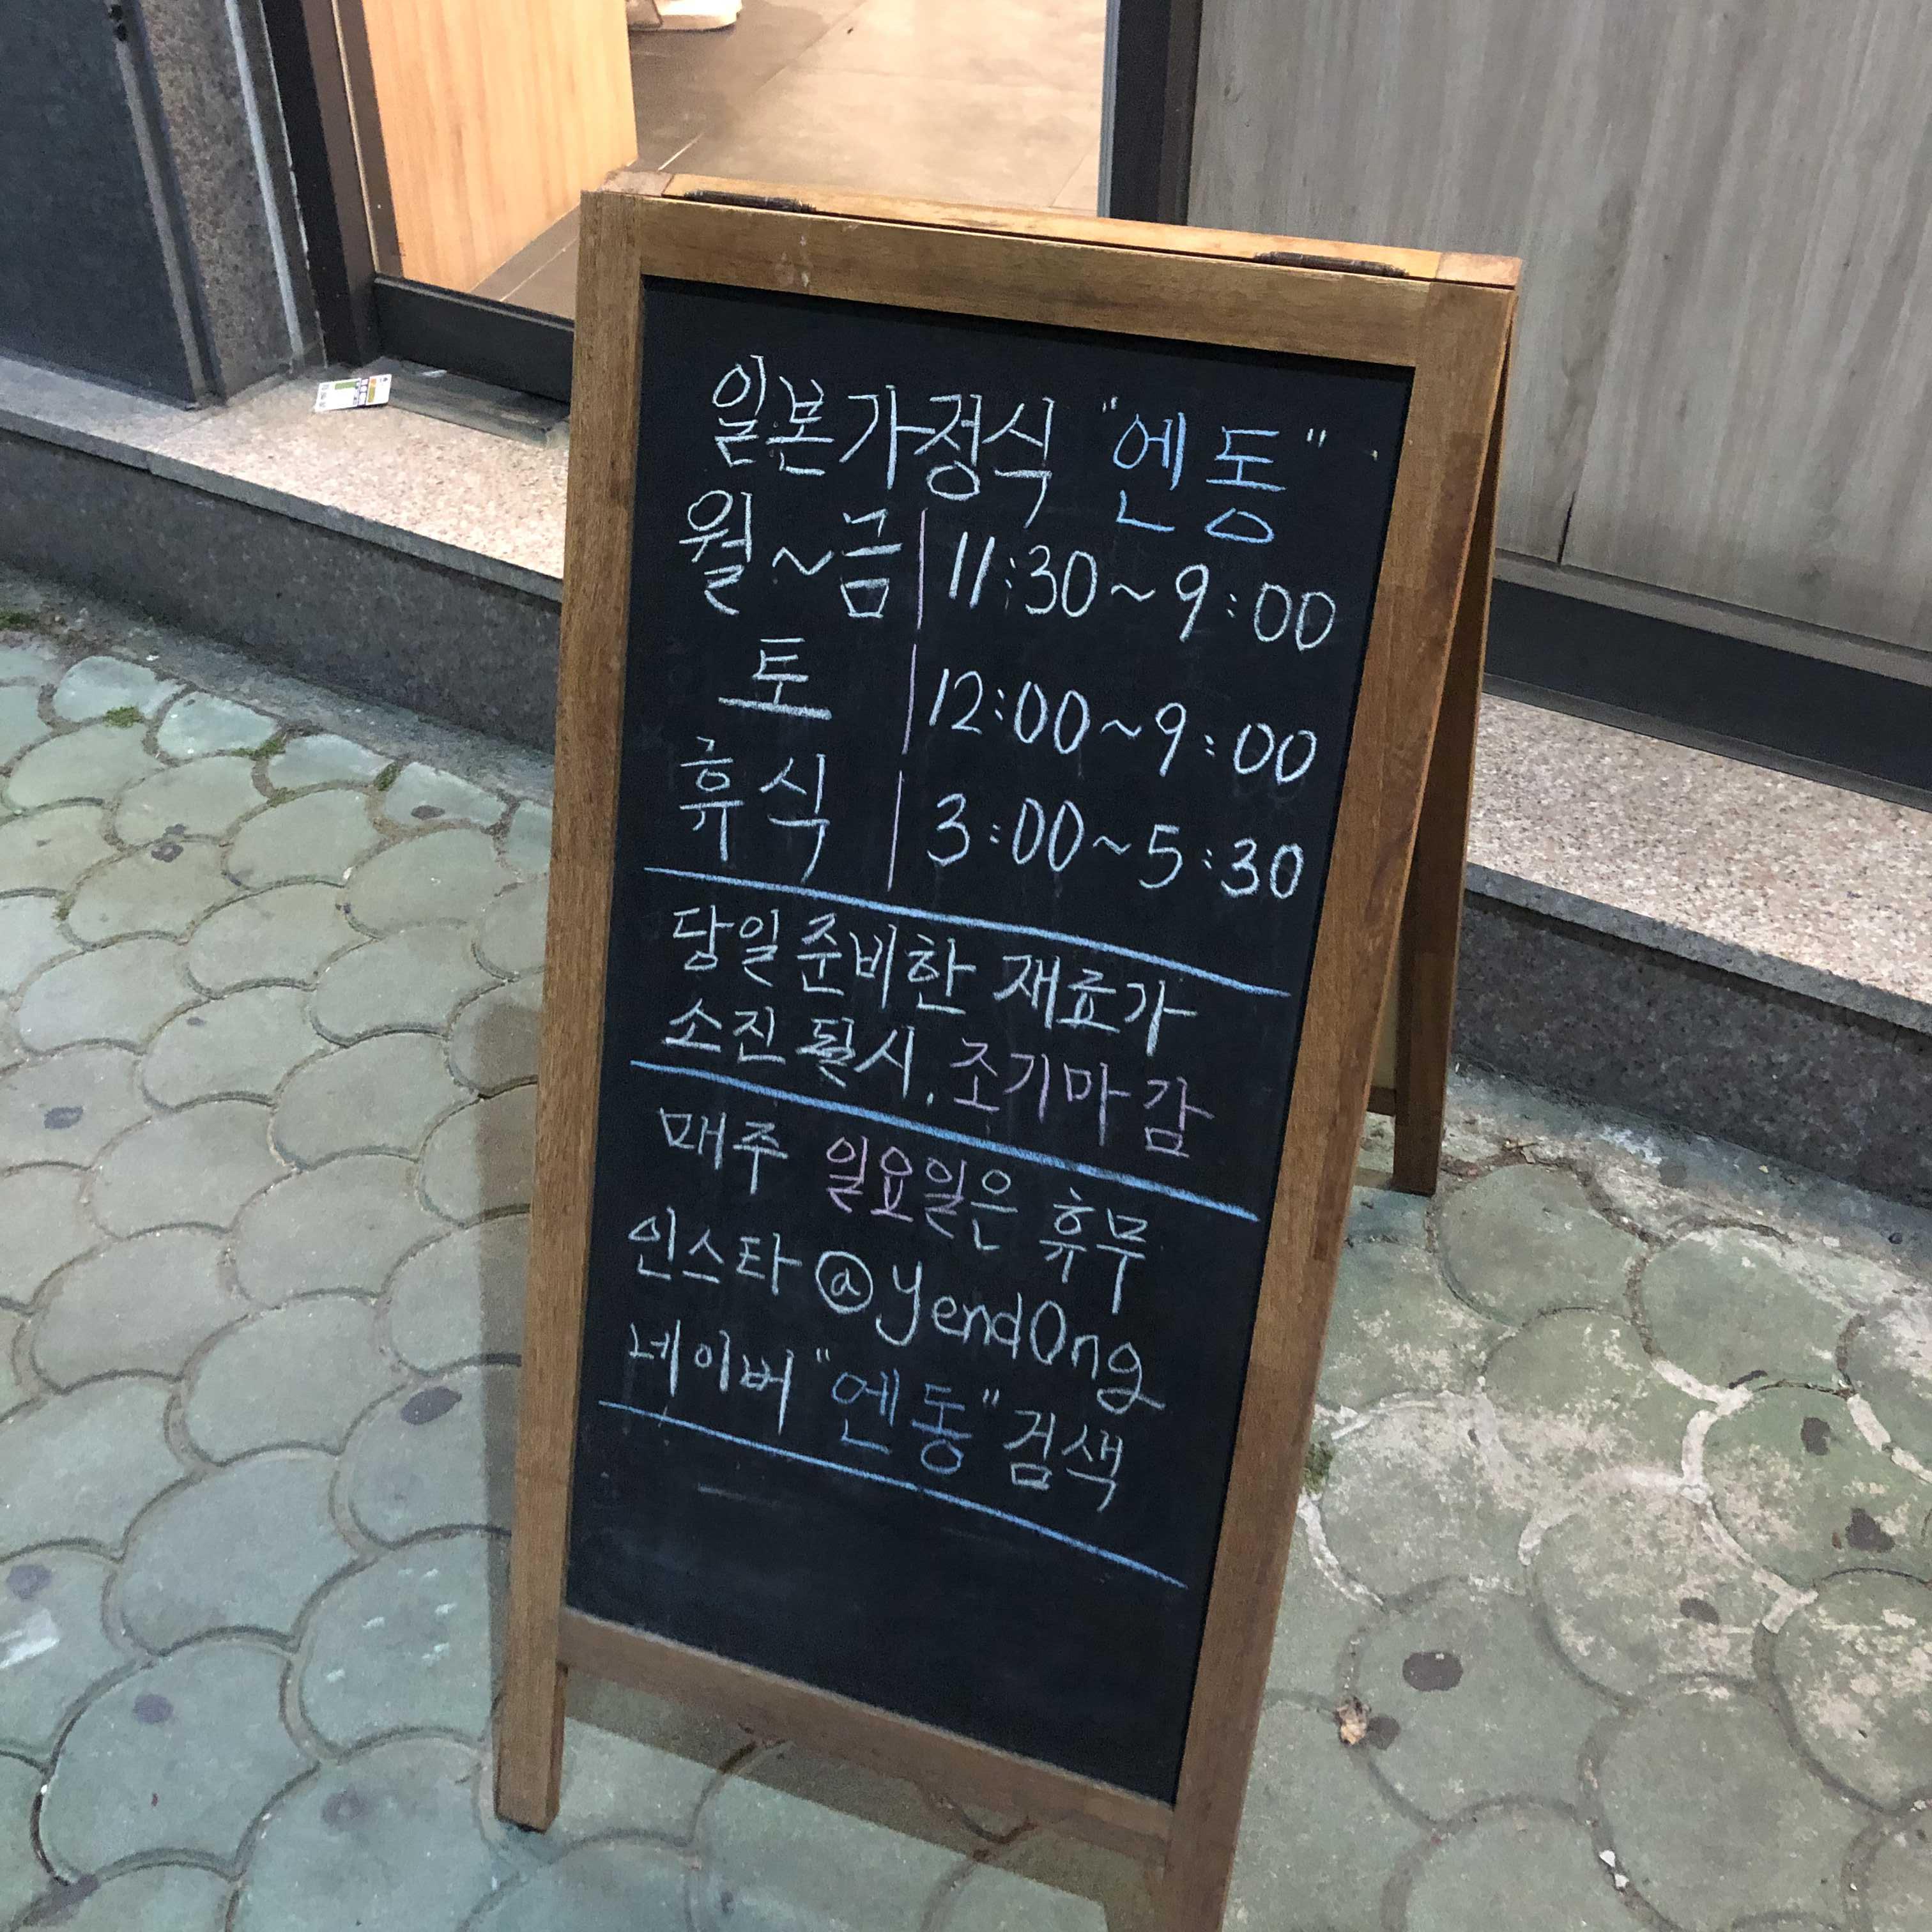 일본가정식 "엔동"
월~금 | 11:30~9:00
토 | 12:00~9:00
휴식 | 3:00~5:30
당일 준비한 재료가
소진 될시, 조기마감
매주 일요일은 휴무
인스타 @yendOng
네이버 "엔동" 검색